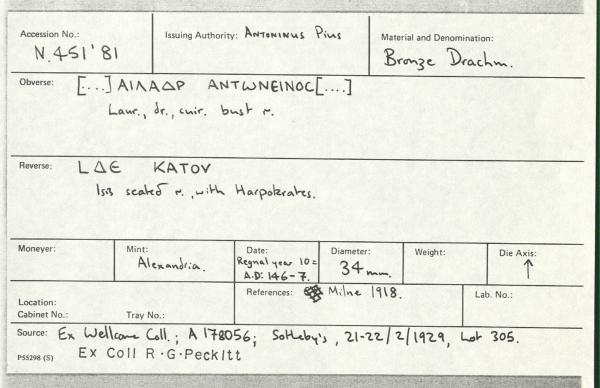 Accession No.: N.451'81
Issuing Authority: Antoninus Pius
Material and Denomination: Bronze Drachm.
Obverse: [....] ΑΙΛΑΔΡ ΑΝΤωΝΕΙΝΟC[....]
Laur., dr., cuir. bust r.
Reverse: L ΔΕ ΚΑΤΟV
Isis seated r., with Harpokrates.
Moneyer:
Mint: Alexandria.
Date: Regnal year 10 = A.D: 146-7.
Diameter: 34 mm.
Weight:
Die Axis: ↑
Location:
Cabinet No.: Tray No.:
References: Milne 1918.
Lab. No.:
Source: Ex Wellcome Coll.; A 178056; Sotheby's, 21-22/2/1929, Lot 305.
P55298 (S) Ex Coll R·G·Peckitt